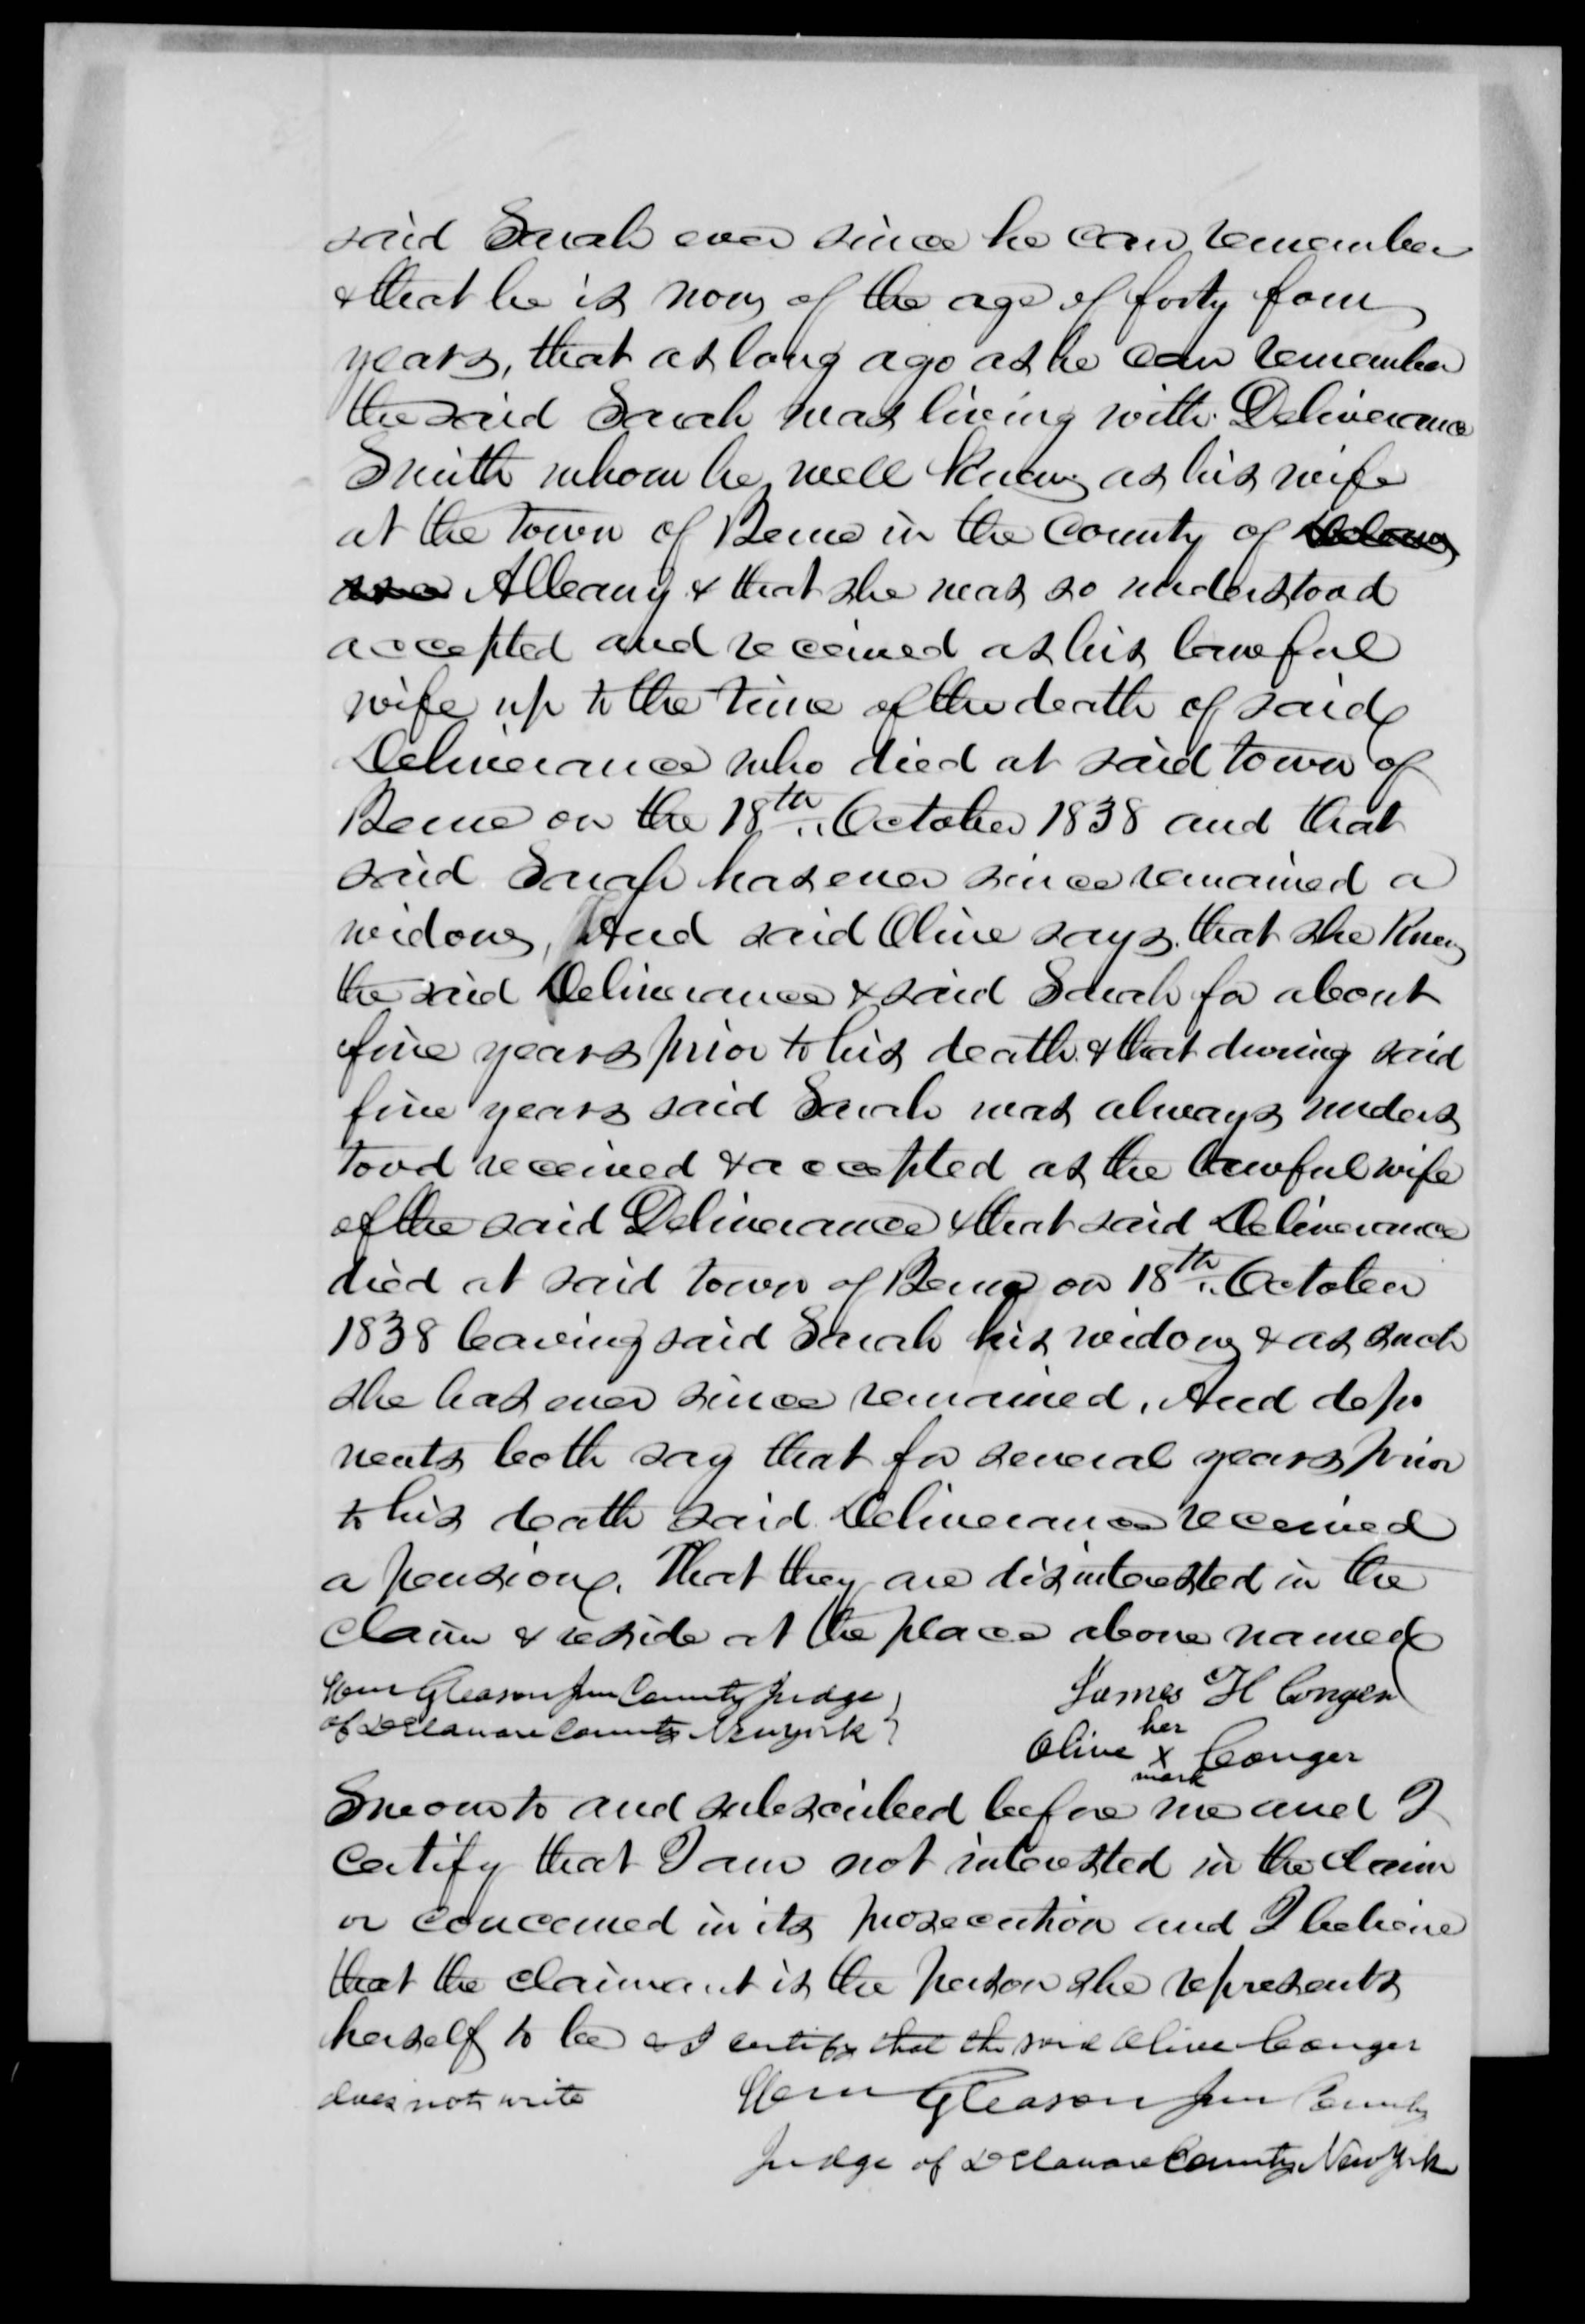 said Sarah ever since he can remember
& that he is now of the age of forty four
years, that as long ago as he can remember
the said Sarah was living with Deliverance
Smith whom he well knew as his wife
at the town of Berne in the County of Delaw
are Albany & that she was so understood
accepted and received as his lawful
wife up to the time of the death of said
Deliverance who died at said town of
Berne on the 18th October 1838 and that
said Sarah has ever since remained a
widow, And said Olive says that she knew
the said Deliverance & said Sarah for about
five years prior to his death & that during said
five years said Sarah was always unders
tood received & accepted as the lawful wife
of the said Deliverance & that said Deliverance
died at said town of Berne on 18th October
1838 leaving said Sarah his widow & as such
she has ever since remained, And depo
nents both say that for several years prior
to his death said Deliverance received
a pension. That they are disinterested in the
claim & reside at the place above named
Wm Gleason Jun County Judge
of Delaware County New York
James H Conger
her
Olive x Conger
mark
Sworn to and subscribed before me and I
certify that I am not interested in the claim
or concerned in its prosecution and I believe
that the claimant is the person she represents
herself to be & I certify that the said Olive Conger
does not write
Wm Gleason Jun County
Judge of Delaware County New York